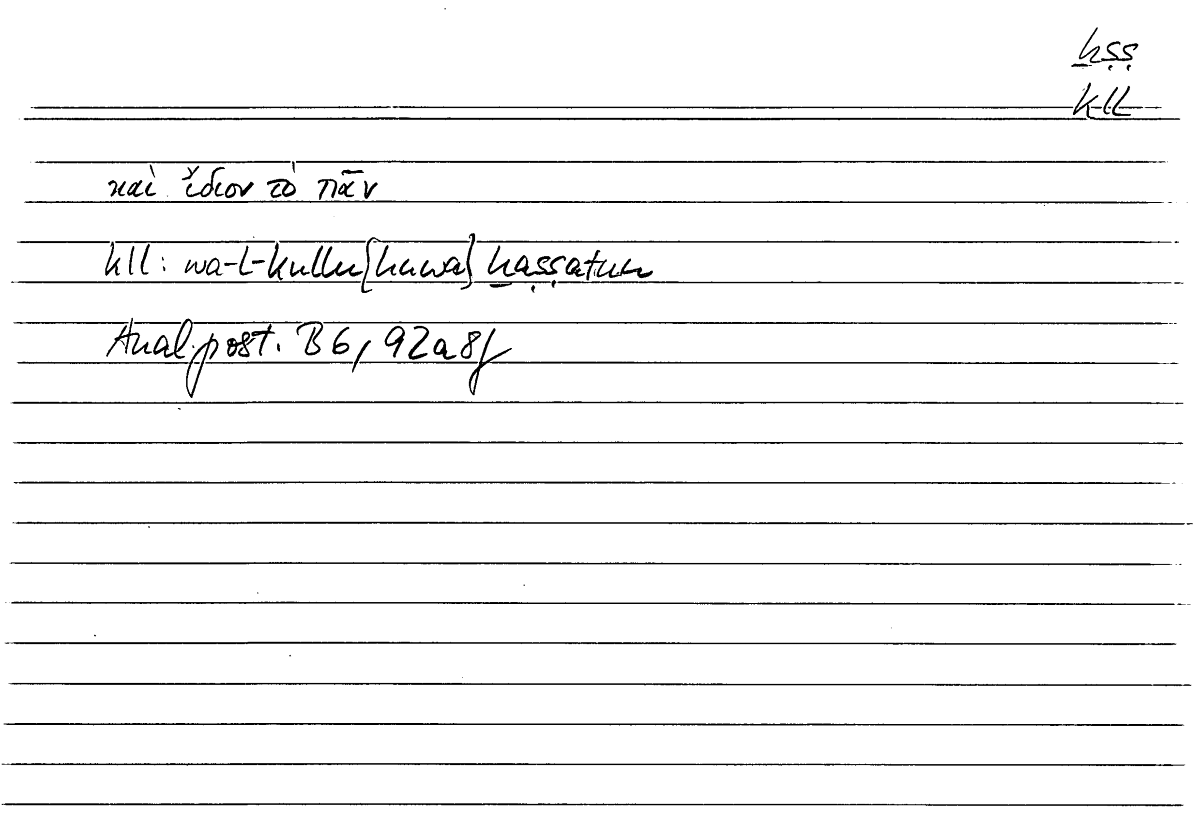 ḫṣṣ
kll
καὶ ἴδιον τὸ πᾶν
kll: wa-l-kullu [huwa] ḫaṣṣatun
Anal. post. B 6, 92a8f